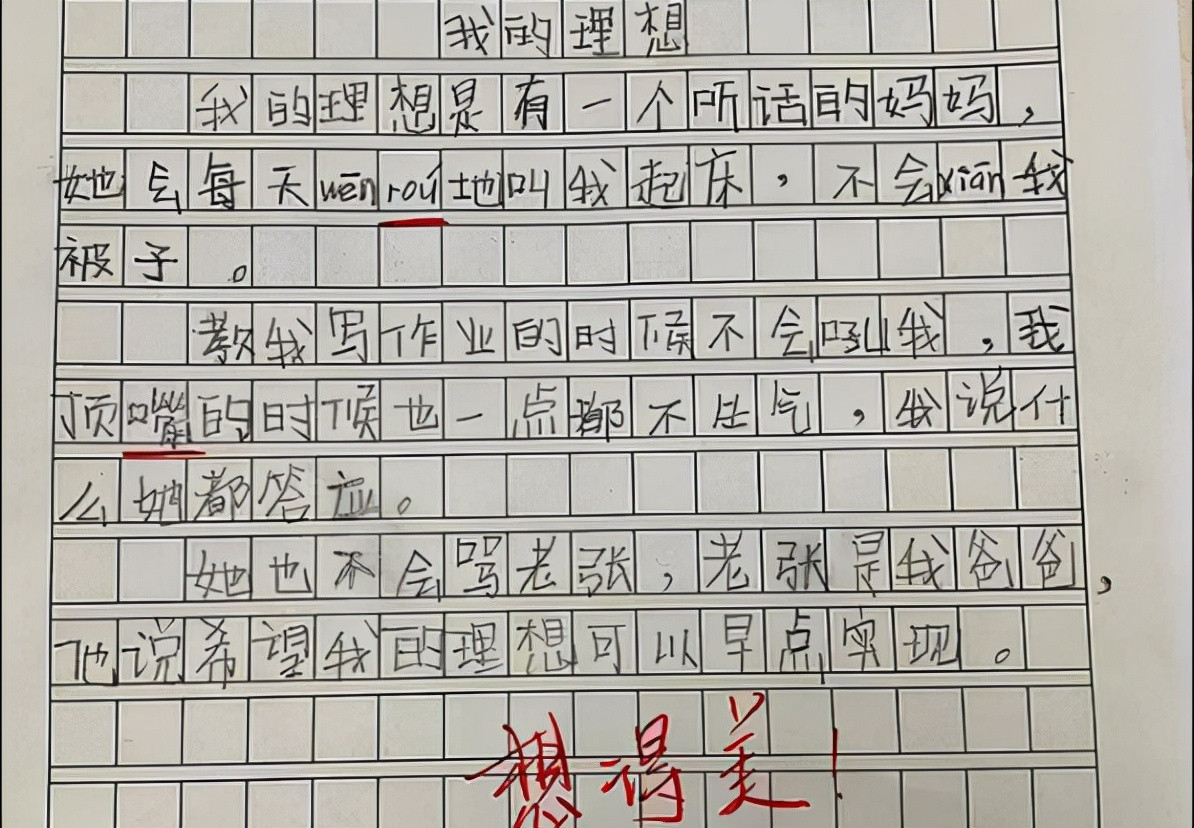 我的理想
我的理想是有一个听话的妈妈，
她会每天wēn roú地叫我起床，不会xiān我
被子。
教我写作业的时候不会吼我，我
顶嘴的时候也一点都不生气，我说什
么她都答应。
她也不会骂老张，老张是我爸爸，
他说希望我的理想可以早点实现。
想得美！